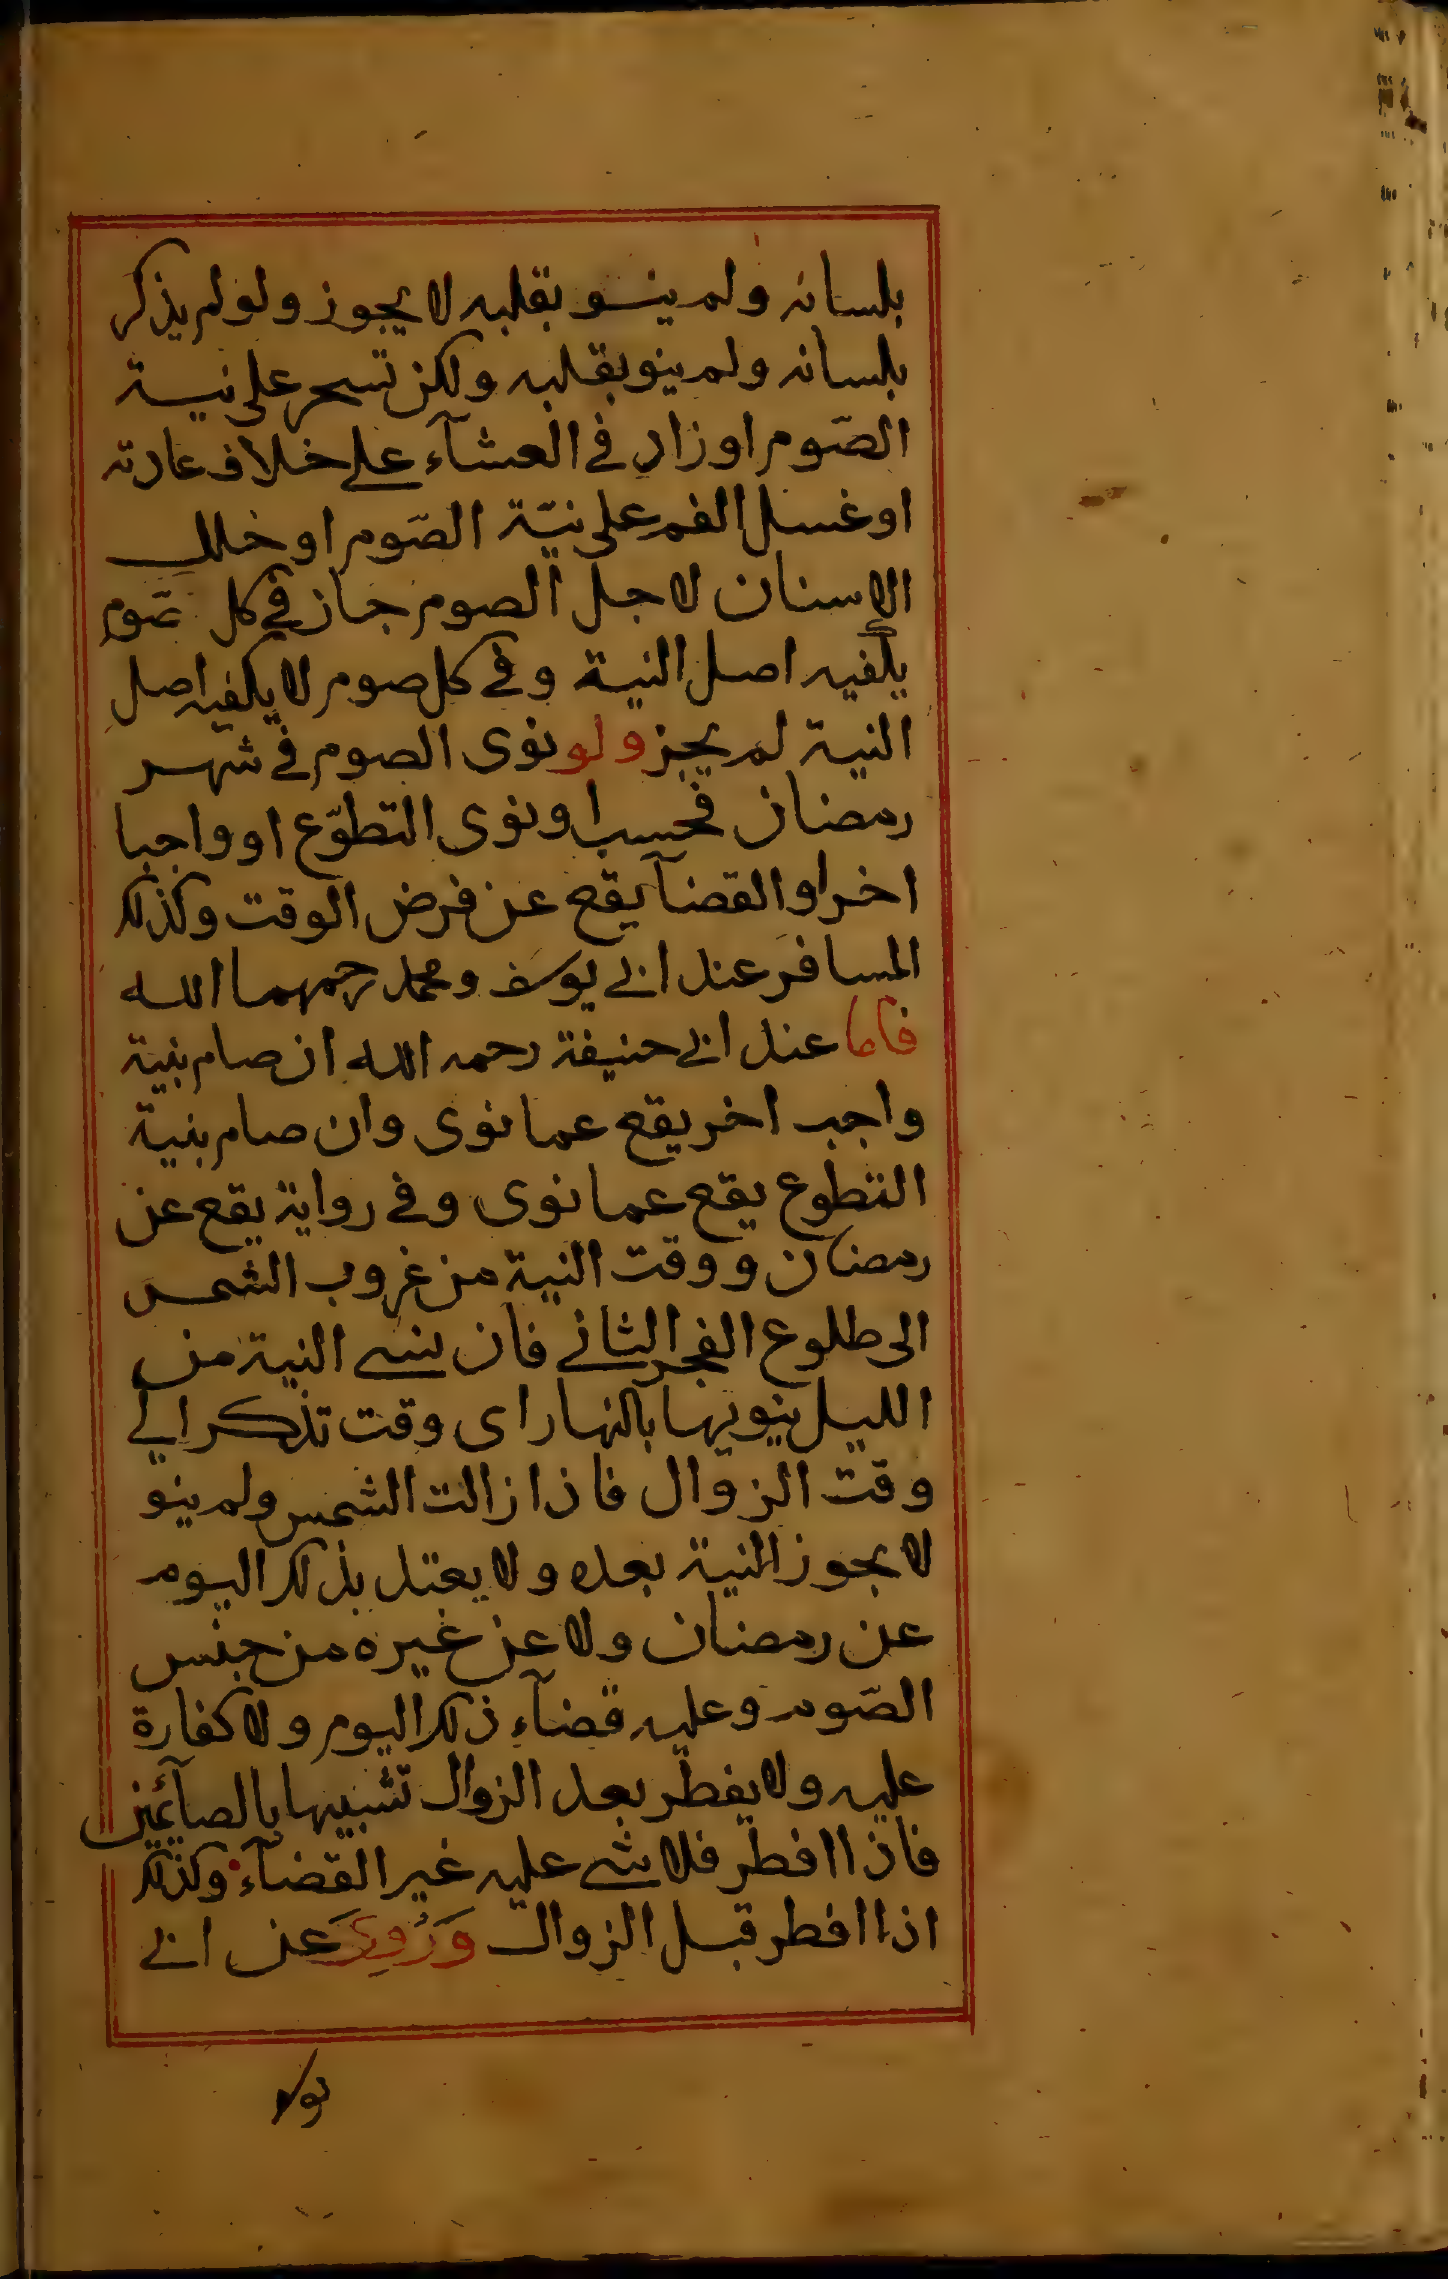 بلسانه ولم ينو بقلبه لا يجوز ولو لم يذكر
بلسانه ولم ينو بقلبه ولكن تسحر على نية
الصّوم او زاد في العشآء على خلاف عادته
او غسل الفم على نيّة الصّوم او خلل
الاسنان لاجل الصوم جاز في كل صّوم
يكفيه اصل النية وفي كل صوم لا يكفيه اصل
النية لم يجز ولو نوى الصوم في شهر
رمضان فحسب او نوى التطوّع او واجبا
اخر او القضآ يقع عن فرض الوقت وكذلك
المسافر عند ابي يوسف ومحمد رحمهما الله
فاما عند ابي حنيفة رحمه الله ان صام بنية
واجب اخر يقع عما نوى وان صام بنية
التطوع يقع عما نوى وفي رواية يقع عن
رمضان ووقت النية من غروب الشمس
الى طلوع الفجر الثاني فان نسي النية من
الليل ينويها بالنهار اى وقت تذكر الى
وقت الزوال فاذا زالت الشمس ولم ينو
لا يجوز النية بعده ولا يعتد بذلك اليوم
عن رمضان ولا عن غيره من جنس
الصّوم وعليه قضآء ذلك اليوم ولا كفارة
عليه ولا يفطر بعد الزوال تشبيها بالصآئمين
فاذا افطر فلا شي عليه غير القضآء وكذلك
اذا افطر قبل الزوال وَرُوِيَ عن ابي